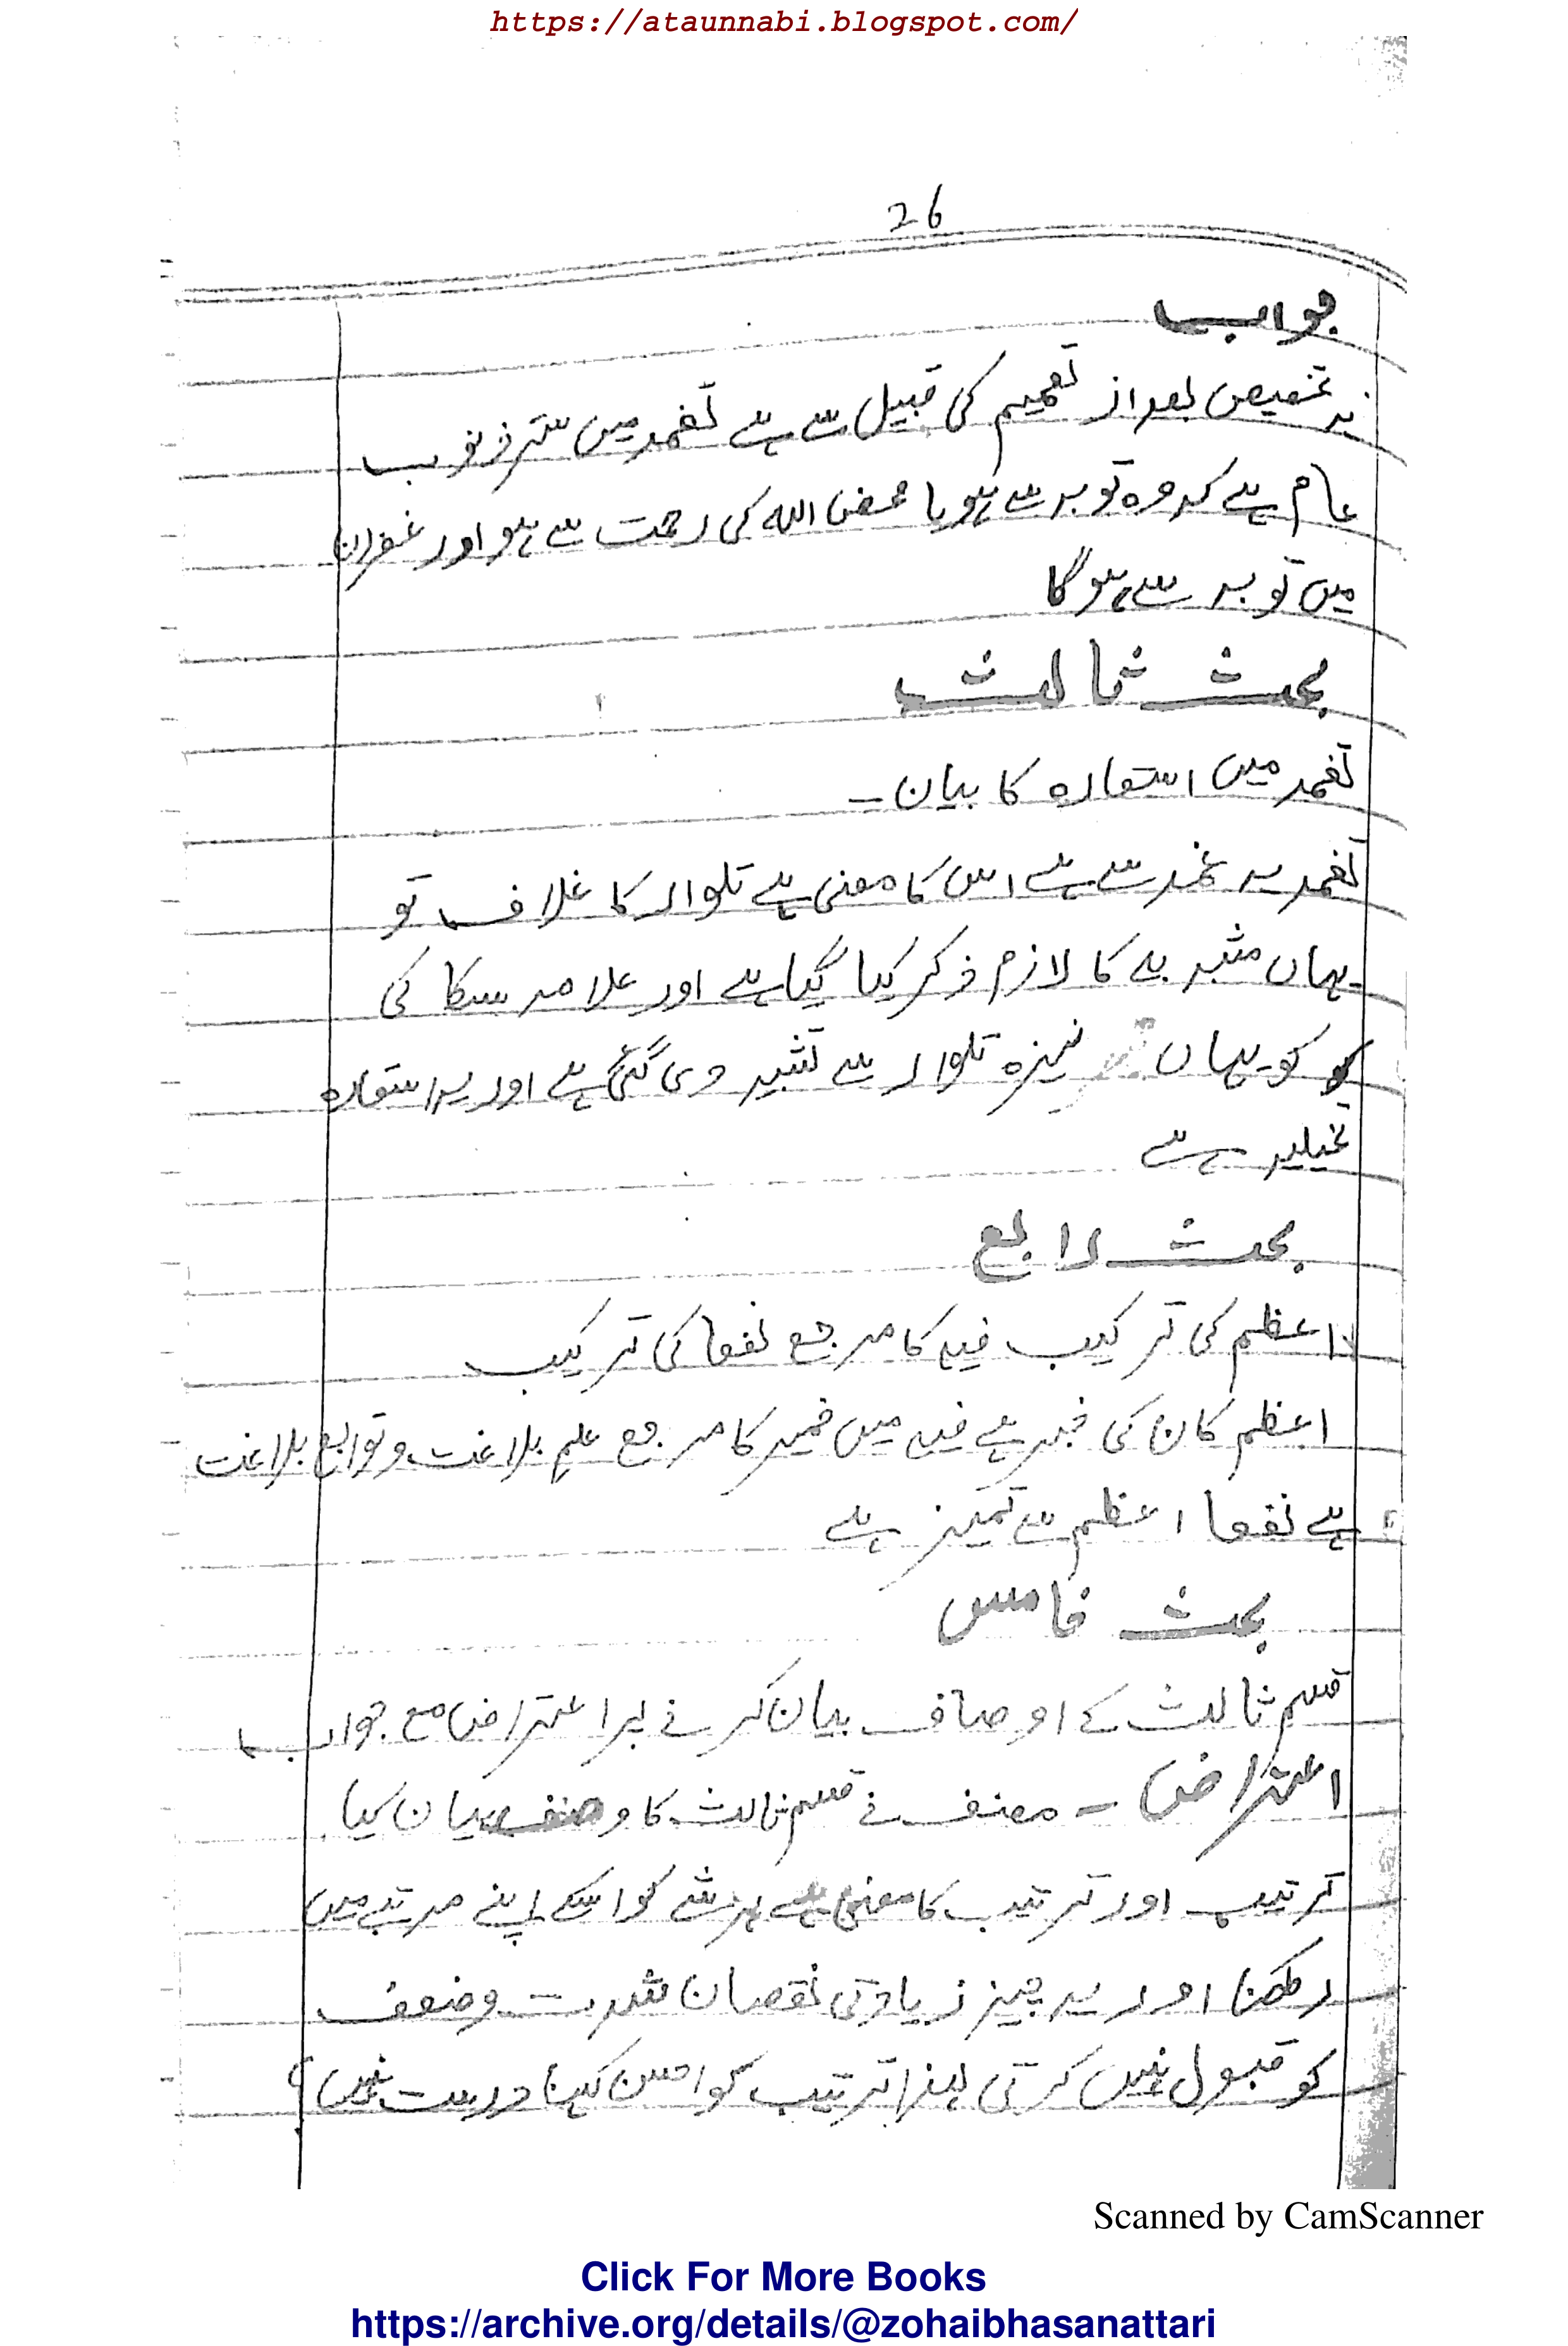 https://ataunnabi.blogspot.com/
26
جواب
یہ تخصیص بعد از تعمیم کی قبیل سے ہے تغمد میں ستر ذنوب
عام ہے کہ وہ توبہ سے ہو یا محض اللہ کی رحمت سے ہو اور غفران
میں توبہ سے ہوگا
بحث ثالث
تغمد میں استعارہ کا بیان۔
تغمد یہ غمد سے ہے اس کا معنی ہے تلوار کا غلاف تو
یہاں مشبہ بہ کا لازم ذکر کیا گیا ہے اور علامہ سکاکی
کو یہاں نیزہ تلوار سے تشبیہ دی گئی ہے اور یہ استعارہ
تخییلیہ ہے
بحث رابع
اعظم کی ترکیب فیہ کا مرجع نفعا کی ترکیب
اعظم کان کی خبر ہے فیہ میں ضمیر کا مرجع علم بلاغت و توابع بلاغت
ہے نفعا اعظم سے تمییز ہے
بحث خامس
قسم ثالث کے اوصاف بیان کرنے پر اعتراض مع جواب
اعتراض ۔ مصنف نے قسم ثالث کا وصف بیان کیا
ترتیب اور ترتیب کا معنی ہے ہر شے کو اسکے اپنے مرتبے میں
رکھنا اور یہ چیز زیادتی نقصان شدت و ضعف
کو قبول نہیں کرتی لہذا ترتیب کو احسن کہنا درست نہیں؟
Scanned by CamScanner
Click For More Books
https://archive.org/details/@zohaibhasanattari